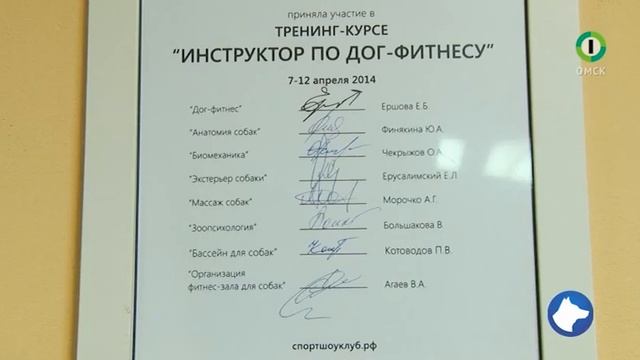 приняла участие в
ТРЕНИНГ-КУРСЕ
"ИНСТРУКТОР ПО ДОГ-ФИТНЕСУ"
7-12 апреля 2014
"Дог-фитнес" Ершова Е.Б.
"Анатомия собак" Финякина Ю.А.
"Биомеханика" Чекрыжов О.А.
"Экстерьер собаки" Ерусалимский Е.Л
"Массаж собак" Морочко А.Г.
"Зоопсихология" Большакова В
"Бассейн для собак" Котоводов П.В.
"Организация
фитнес-зала для собак" Агаев В.А.
спортшоуклуб.рф
1
ОМСК